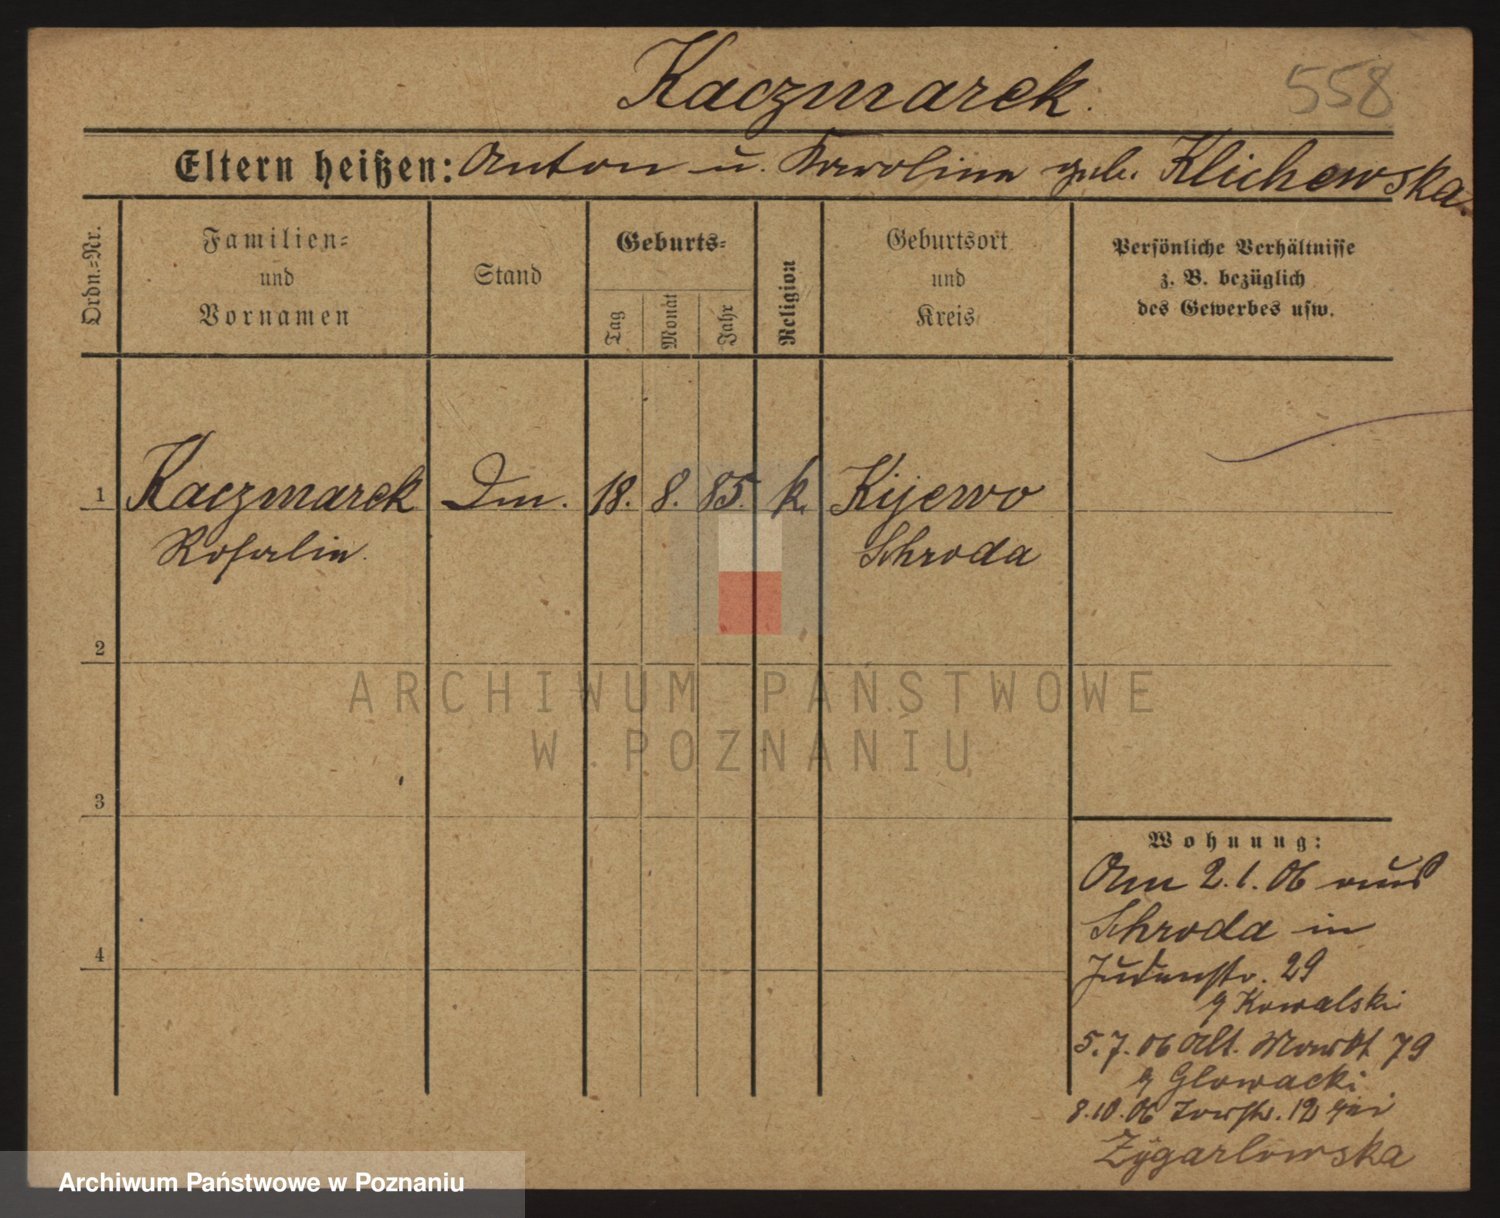 Kaczmarek.
558
Eltern heißen: Anton u. Karolina geb. Klichowska.
Ordn.-Nr.
Familien- und Vornamen
Stand
Geburts-
Tag
Monat
Jahr
Religion
Geburtsort und Kreis
Persönliche Verhältnisse
z. B. bezüglich
des Gewerbes usw.
1 Kaczmarek Dm. 18. 8. 85. k. Kijewo
Rosalie Schroda
2
ARCHIWUM PAŃSTWOWE
W POZNANIU
3
4
Wohnung:
Am 2.1.06 aus
Schroda in
Judenstr. 29
Kowalski
5.7.06 Alt. Markt 79
Glowacki
8.10.06 12 bei
Zygarlowska
Archiwum Państwowe w Poznaniu